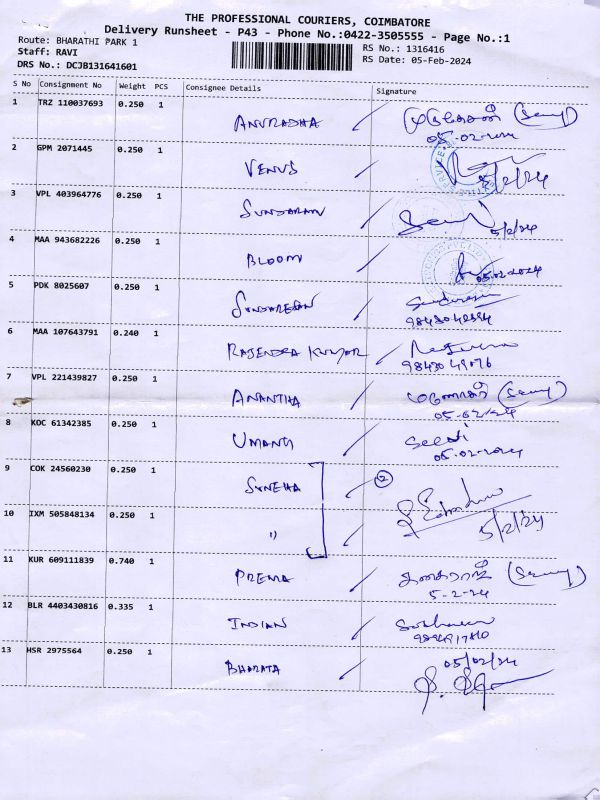 THE PROFESSIONAL COURIERS, COIMBATORE
Delivery Runsheet - P43 - Phone No.:0422-3505555 - Page No.:1
Route: BHARATHI PARK 1
RS No.: 1316416
Staff: RAVI
RS Date: 05-Feb-2024
DRS No.: DCJB131641601
S No Consignment No Weight PCS Consignee Details Signature
1 TRZ 110037693 0.250 1 ANURADHA
05-02-2024
2 GPM 2071445 0.250 1 VENUS
5/2/24
3 VPL 403964776 0.250 1 SUNDARAM
5/2/24
4 MAA 943682226 0.250 1 BLOOM
05.02.2024
5 PDK 8025607 0.250 1 SUNDARESAN
6 MAA 107643791 0.240 1 RAJENDRA KUMAR
9843049076
7 VPL 221439827 0.250 1 ANANTHA
05-02-2024
8 KOC 61342385 0.250 1 UMANG
05.02.2024
9 COK 24560230 0.250 1 SYNEHA 2
10 IXM 505848134 0.250 1 "
5/2/24
11 KUR 609111839 0.740 1 PREMA
5-2-24
12 BLR 4403430816 0.335 1 INDIAN
13 HSR 2975564 0.250 1 BHARATA 05/02/24